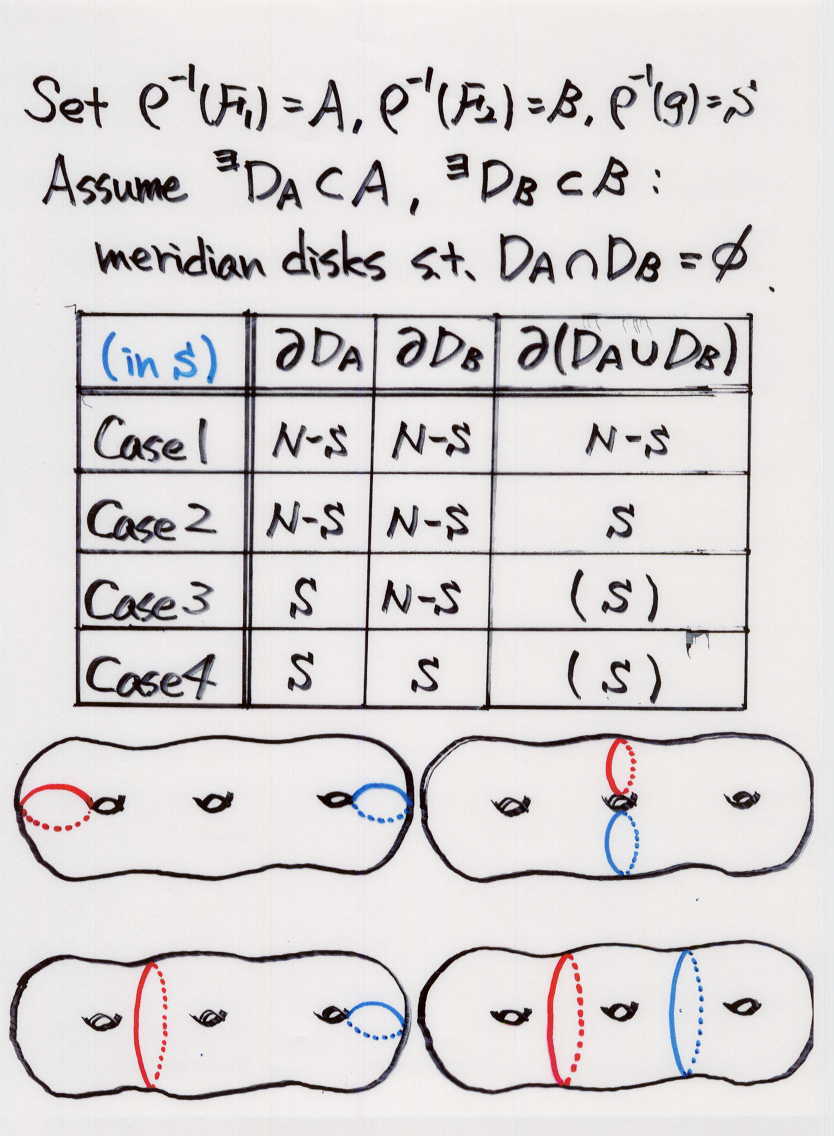 Set ρ⁻¹(F₁) = A, ρ⁻¹(F₂) = B, ρ⁻¹(g) = S
Assume ∃D_A ⊂ A, ∃D_B ⊂ B :
meridian disks s.t. D_A ∩ D_B = ∅.
(in S) ∂D_A ∂D_B ∂(D_A ∪ D_B)
Case 1 N-S N-S N-S
Case 2 N-S N-S S
Case 3 S N-S (S)
Case 4 S S (S)